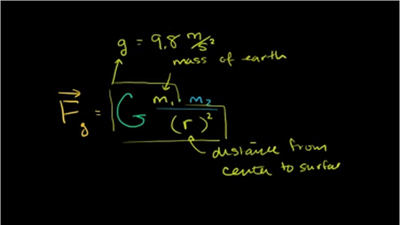 g = 9.8 m/s²
mass of earth
F_g = G m₁ m₂ / (r)²
distance from
center to surfac